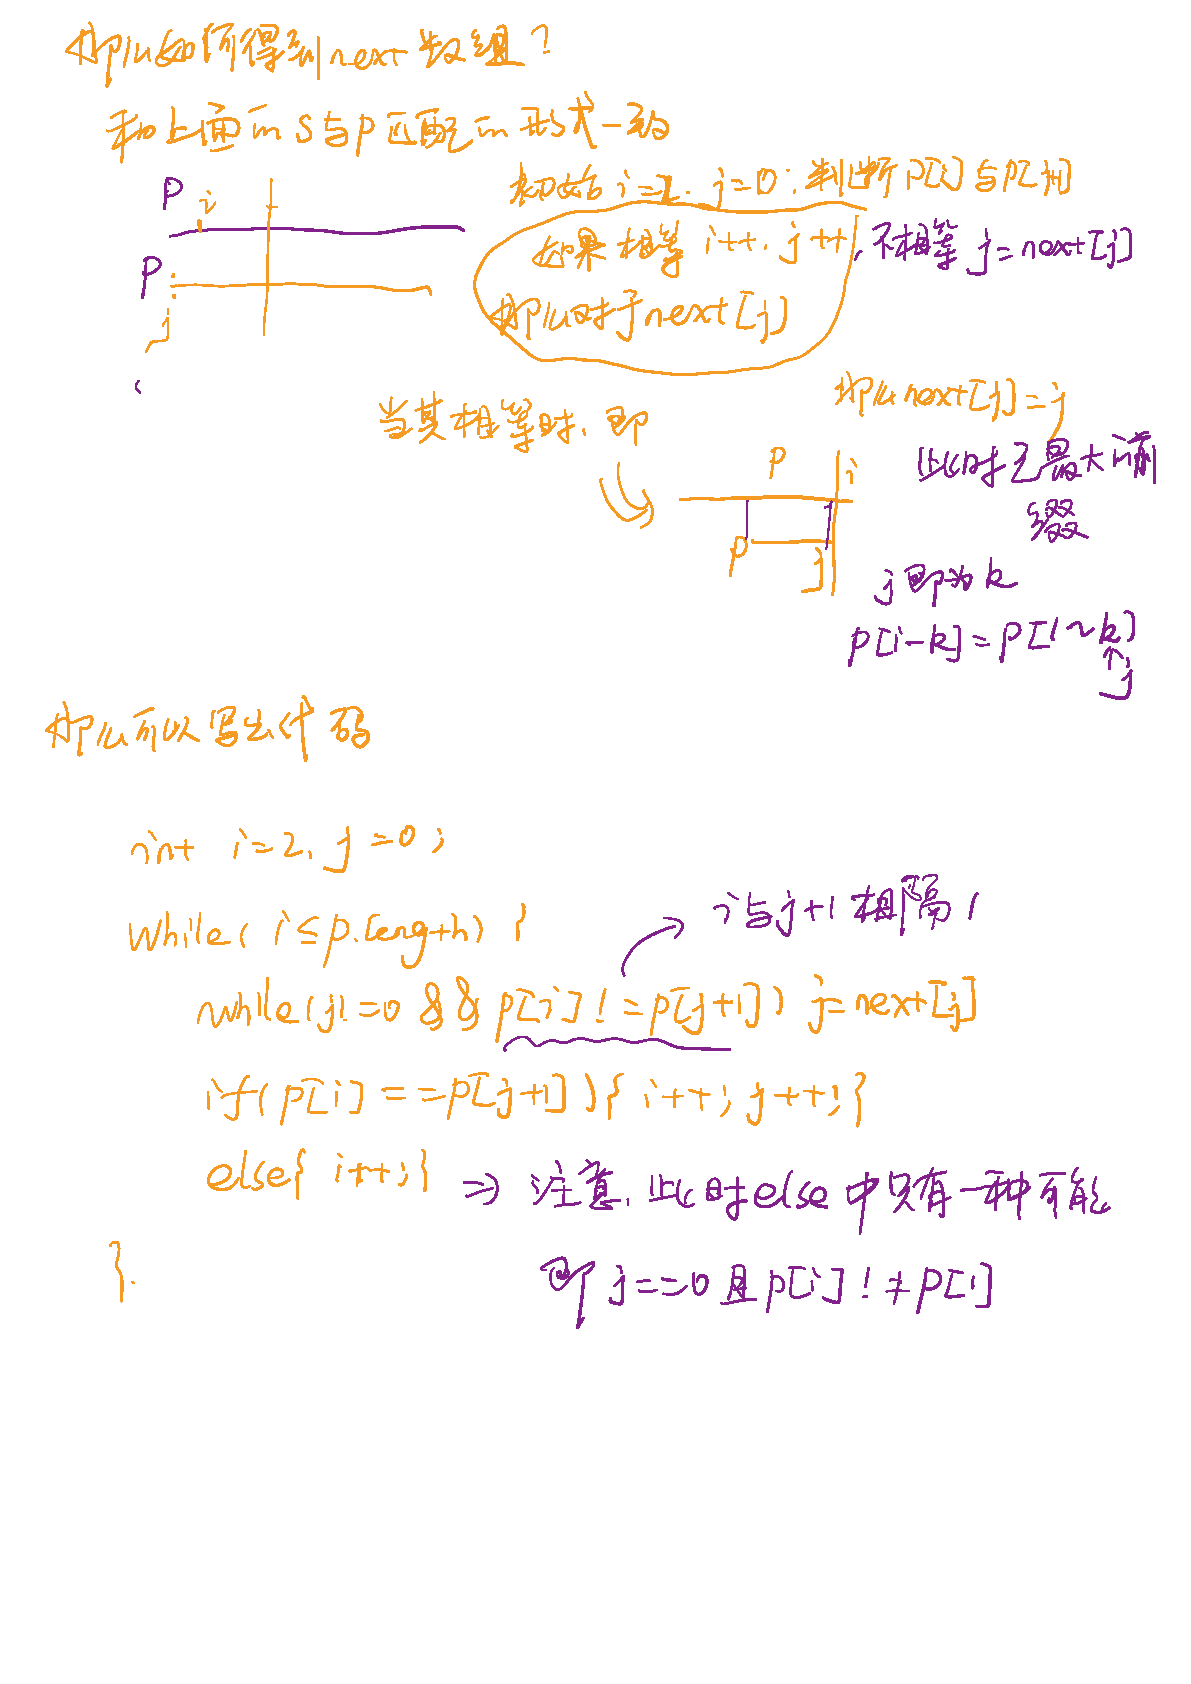 那么如何得到next数组?
和上面的S与P匹配的形式一致
初始 i=2, j=0; 判断P[i]与P[j+1]
如果相等 i++, j++, 不相等 j=next[j]
那么对于next[j]
P
i
P
j
当其相等时, 即
那么next[j]=j
此时已最大的前
缀
P
i
P
j
j即为k
P[i-k]=P[1~k]
j
那么可以写出代码
int i=2, j=0;
while(i≤p.length) {
i与j+1相隔1
while(j!=0 && p[i]!=p[j+1]) j=next[j]
if(p[i]==p[j+1]){ i++; j++;}
else{ i++;} => 注意, 此时else中只有一种可能
}.
即 j==0 且 p[i]!≠p[1]